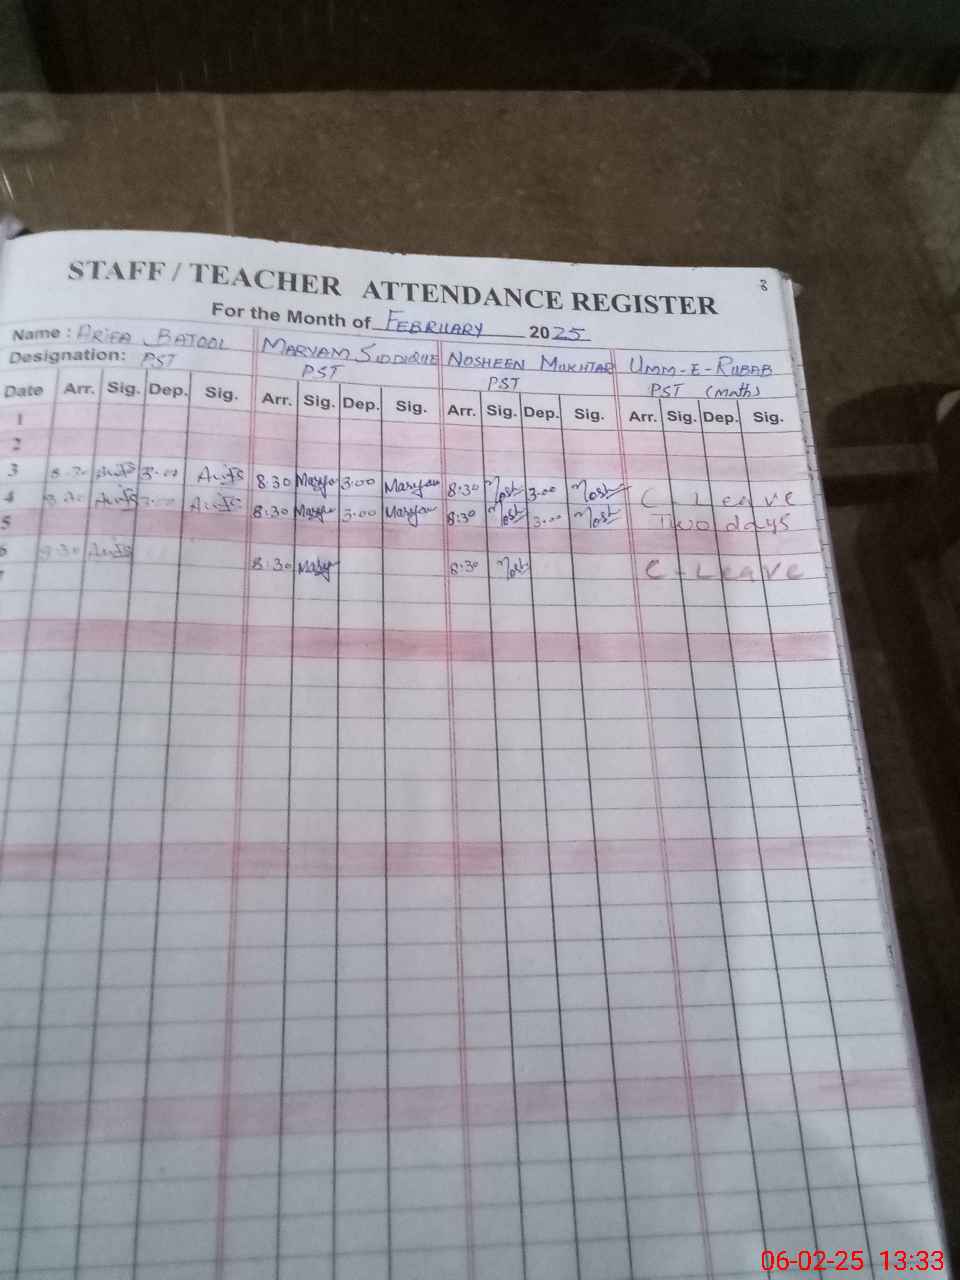 STAFF / TEACHER ATTENDANCE REGISTER
For the Month of FEBRUARY 2025
Name : ARIFA BATOOL MARYAM SIDDIQUE NOSHEEN MUKHTAR UMM-E-RUBAB
Designation: PST PST PST PST (Math)
Date Arr. Sig. Dep. Sig. Arr. Sig. Dep. Sig. Arr. Sig. Dep. Sig. Arr. Sig. Dep. Sig.
1
2
3 8.30 3.00 8.30 Maryam 3.00 Maryam 8:30 3.00 C-Leave
4 8.30 3.00 8:30 3.00 Maryam 8:30 3.00 Two days
5
6 8:30 8:30 8:30 C-Leave
7
06-02-25 13:33